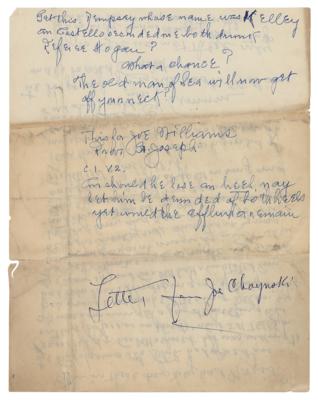 Get this. Dempsey whose name was Kelley
an Costello seconded me both drunk
Referee Hogan?
What a chance?
The old man of Sea will now get
off your neck.
This for Joe Williams
Prov. St Joseph
C.1. V2.
an should he lose an heel, nay
let him be denuded of both heels
yet would the effluvia remain
Letter from Joe Choynski